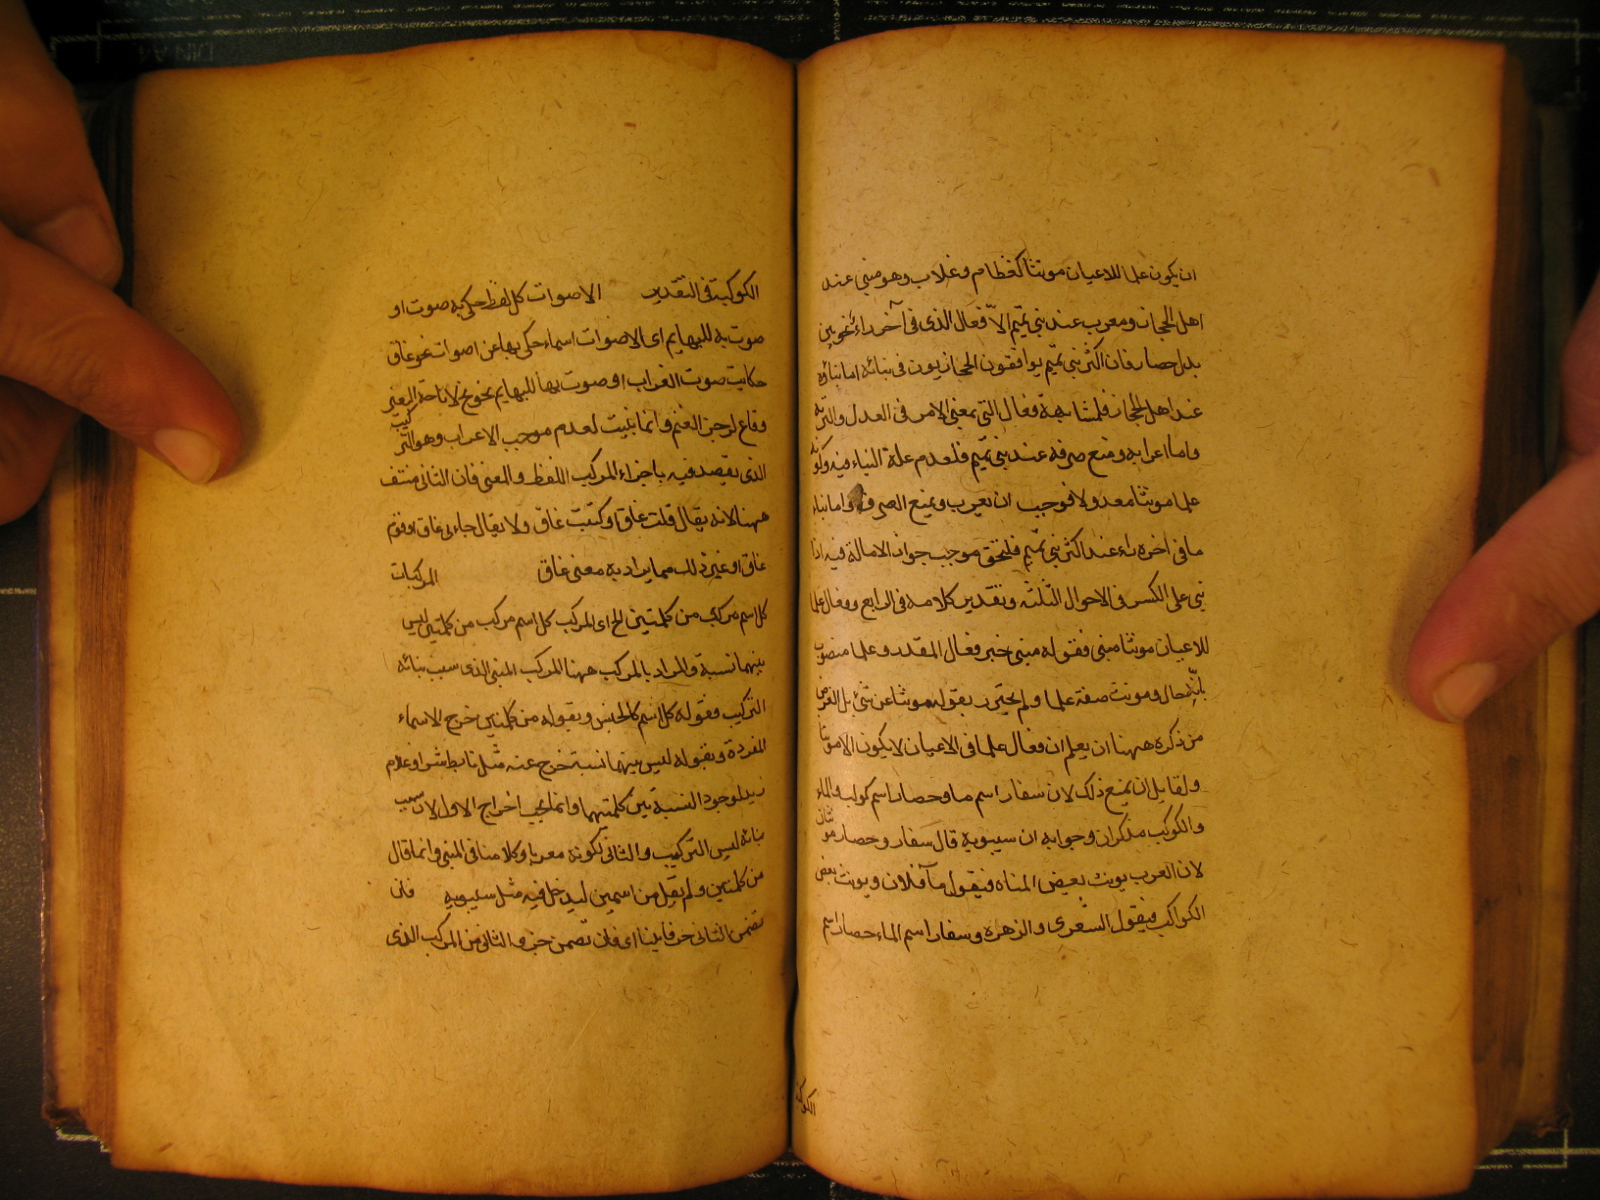 ان يكون علما للاعيان مونثا كقطام وغلاب وهو مبنى عند
اهل الحجاز ومعرب عند بنى تميم الا فعال الذى فى آخره راء نحو
بدل حصار فان اكثر بنى تميم يوافقون الحجازيون فى بنائه اما بناؤه
عند اهل الحجاز فلمشابهة فعال التى بمعنى الامر فى العدل والزنة
واما اعرابه ومنع صرفه عند بنى تميم فلعدم علة البناء فيه وكونه
علما مونثا معدولا فوجب ان يعرب ويمنع الصرف واما بناء
ما فى اخره راء عند اكثر بنى تميم فلتحقق موجب جواز الامالة فيه اذا
بنى على الكسر فى الاحوال الثلثه وتقدير كلامه فى الرابع وفعال علما
للاعيان مونثا مبنى فقوله مبنى خبر فعال المقدر وعلما منصوب
بانه حال ومونث صفة علما ولم يحترز بقوله مونثا عن شئ بل الغرض
من ذكره ههنا ان يعلم ان فعال علما فى الاعيان لا يكون الا مونثا
ولقايل ان يمنع ذلك لان سفار اسم ماء وحصار اسم كوكب والماء
والكوكب مذكران وجوابه ان سيبويه قال سفار وحصار مونثان
لان العرب يونث بعض المياه فيقول ماءة فلان ويونث بعض
الكواكب فيقول الشعرى والزهره وسفار اسم الماء حصار اسم
الكوكبة
الكوكبة فى التقدير الاصوات كل لفظ حكى به صوت او
صوت به للبهايم اى الاصوات اسماء حكى بها عن اصوات نحو غاق
حكاية صوت الغراب او صوت بها للبهايم نحو نخ لاناخة البعير
وقاع لزجر الغنم وانما بنيت لعدم موجب الاعراب وهو التركيب
الذى يقصد فيه باجزاء المركب اللفظ والمعنى فان الثانى منتف
ههنا لانه يقال قلت غاق او كتبت غاق ولا يقال جاءنى غاق او قوم
غاق او غير ذلك مما يراد به معنى غاق المركبات
كل اسم مركب من كلمتين الخ اى المركب كل اسم مركب من كلمتين ليس
بينهما نسبة والمراد بالمركب ههنا المركب المبنى الذى سبب بنائه
التركيب فقوله كل اسم كالجنس وبقوله من كلمتين خرج الاسماء
المفردة وبقوله ليس بينهما نسبة خرج عنه مثل تابط شرا وغلام
زيد لوجود النسبة بين كلمتيهما وانما يجب اخراج الاول لان سبب
بنائه ليس التركيب والثانى لكونه معربا وكلامنا فى المبنى وانما قال
من كلمتين ولم يقل من اسمين ليدخل فيه مثل سيبويه فان
تضمن الثانى حرفا بنيا اى فان تضمن جزء الثانى من المركب الذى